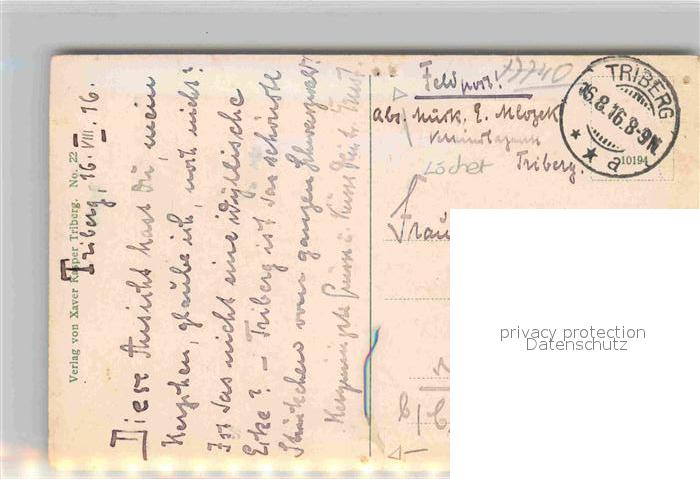 Verlag von Xaver Kasper Triberg. No. 22
Triberg, 16. VIII. 16.
Diese Ansicht hast Du, mein
Herzchen, glaube ich, noch nicht!
Ist das nicht eine idyllische
Ecke? – Triberg ist das schönste
Städtchen vom ganzen Schwarzwald.
Feldpost!
Abs. Musk. E. Mlozek
Triberg.
Löchel
TRIBERG
16.8.16.8-9N.
* * a
10194
Frau
privacy protection
Datenschutz